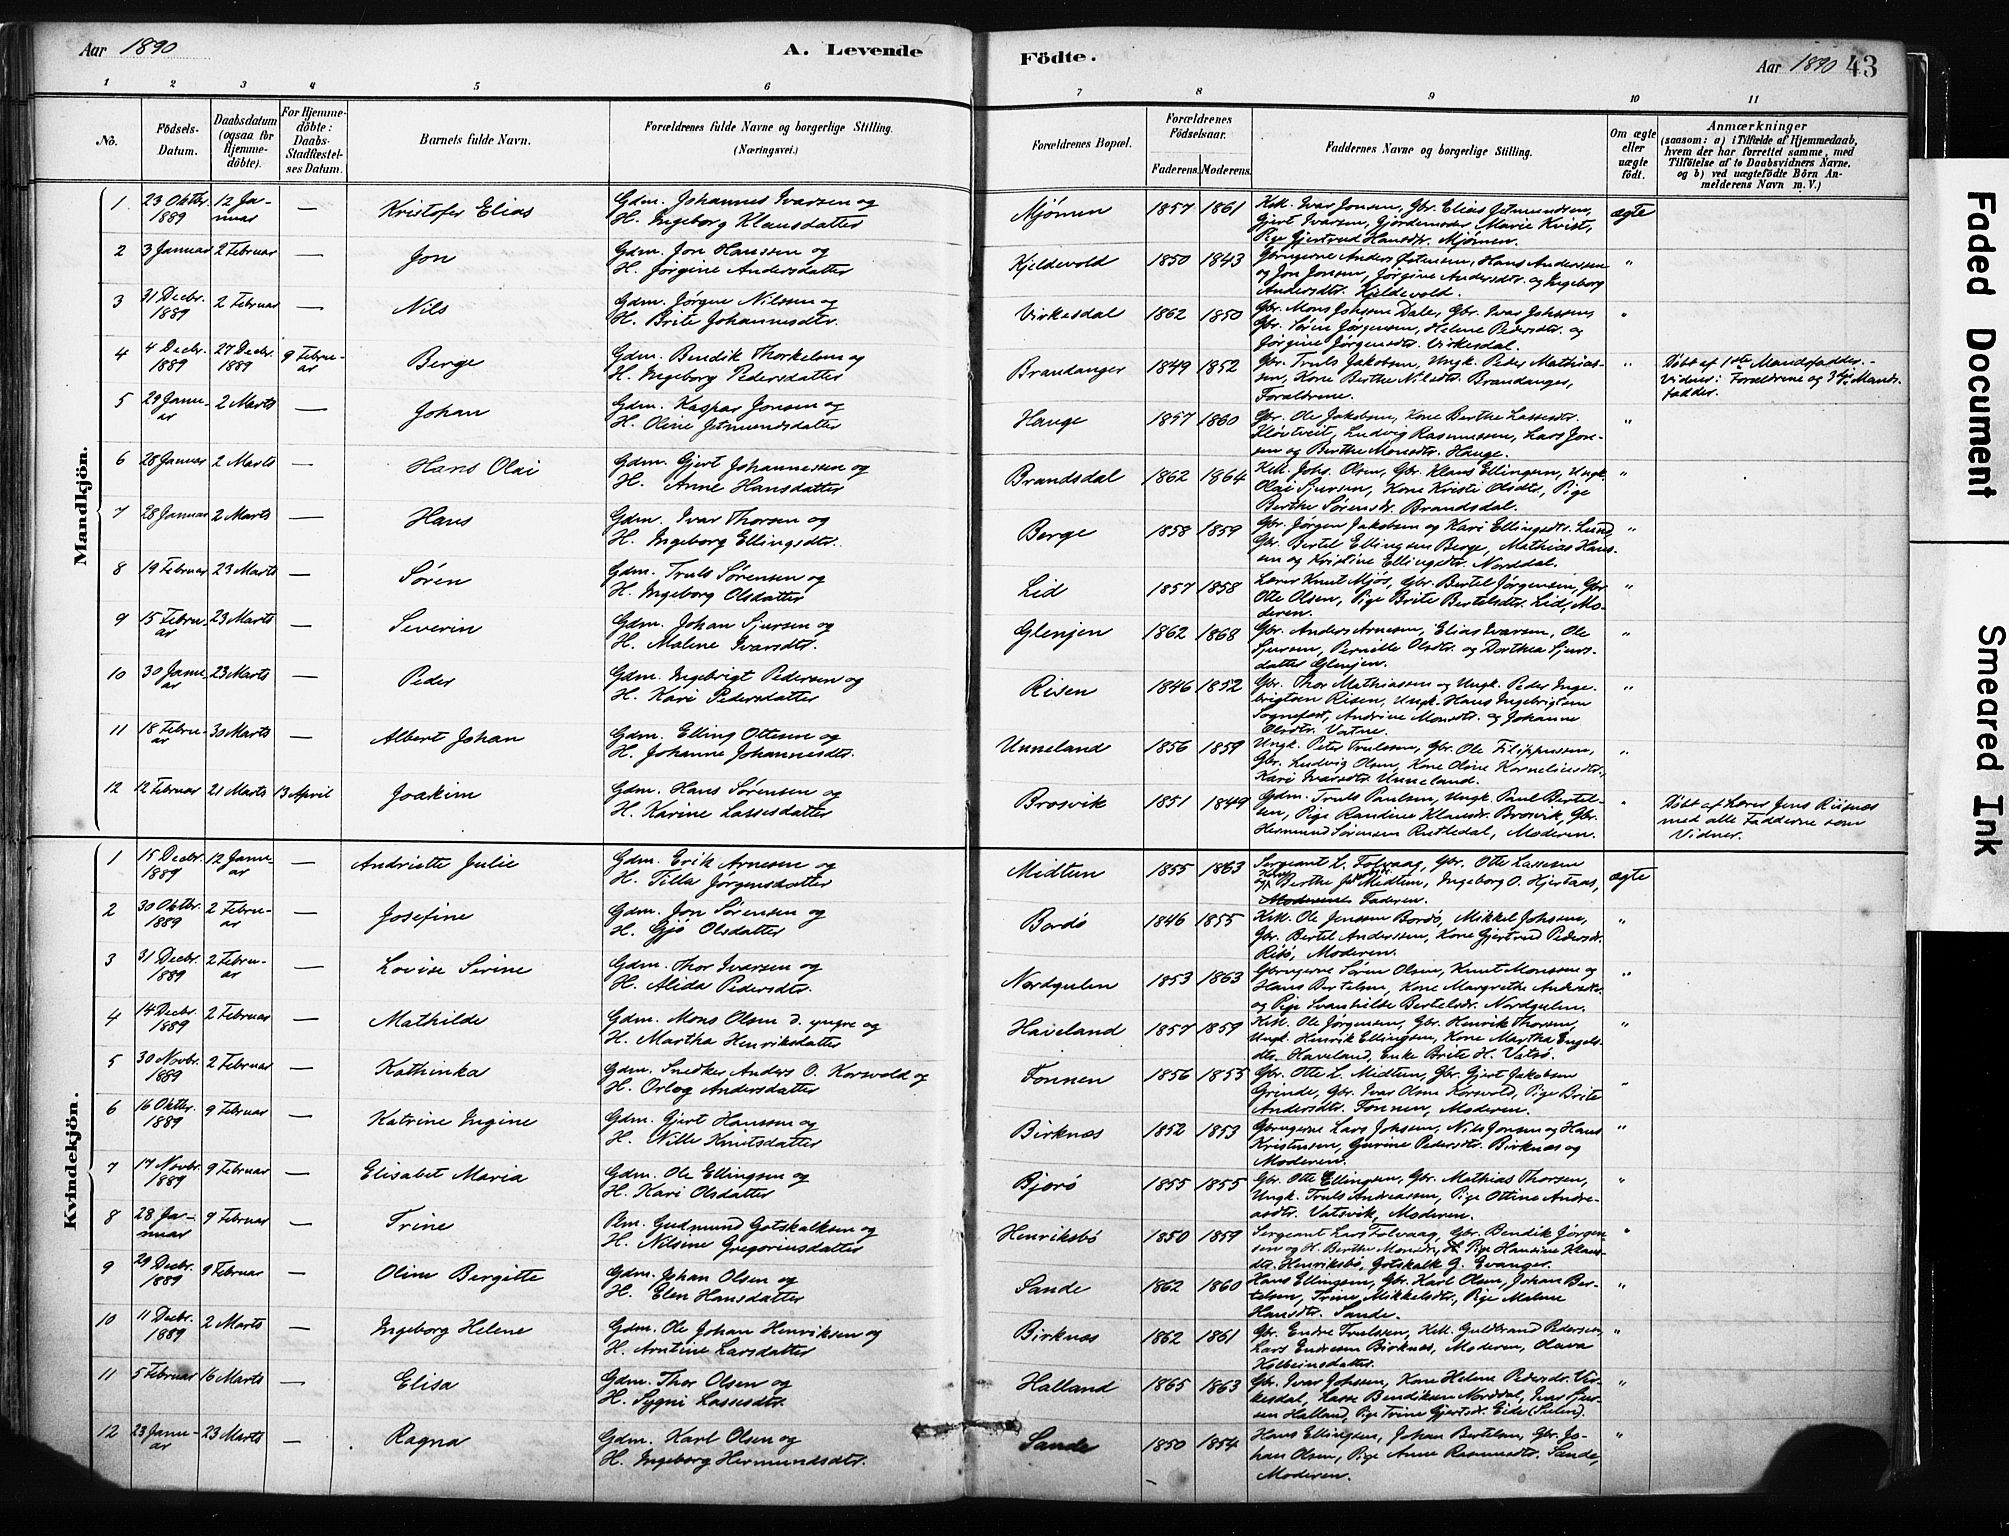 Aar 1890
A. Levende
Födte.
Aar 1890 43
1 2 3 4 5 6 7 8 9 10 11
No.
Födsels-Datum.
Daabsdatum (ogsaa för Hjemmedöbte).
For Hjemmedöbte: Daabs-Stadfæstelses Datum.
Barnets fulde Navn.
Forældrenes fulde Navne og borgerlige Stilling.
(Næringsvei.)
Forældrenes Bopæl.
Forældrenes Födselsaar.
Faderens. Moderens.
Faddernes Navne og borgerlige Stilling.
Om ægte eller uægte födt.
Anmærkninger
(saasom: a) i Tilfælde af Hjemmedaab, hvem der har forrettet samme, med Tilföielse af to Daabsvidners Navne, og b) ved uægtefödte Börn Anmelderens Navn m. V.)
Mandkjön.
1 23 Oktbr. 1889 12 Januar — Kristofer Elias
Gdm. Johannes Ivarsen og
H. Ingeborg Klausdatter
Mjømen 1857 1861
Kdl. Ivar Jonsen, Gbr. Elias Jetmundsen,
Gjert Ivarsen, Gjordemoder Marie Kvist,
Pige Gjertrud Hansdtr. Mjømen.
ægte
2 3 Januar 2 Februar — Jon
Gdm. Jon Hanssen og
H. Jørgine Andersdatter
Kjeldevold 1850 1843
Gbrugerne Anders Jetmsen, Hans Anderssen
og Jon Jonsen, Jørgine Andersdtr. og Ingeborg
Andersdtr. Kjeldevold.
"
3 31 Decbr. 1889 2 Februar — Nils
Gdm. Jørgen Nilssen og
H. Brite Johannesdtr.
Virkesdal 1862 1850
Gbr. Mons Johssen Dale, Gbr. Ivar Johssen,
Gbr. Søren Jørgensen, Helene Pedersdtr. og
Jørgine Jørgensdtr. Virkesdal.
"
4 4 Decbr. 1889 27 Decbr. 1889 9 Februar Berge
Gdm. Bendik Thorkelsen og
H. Ingeborg Pedersdatter
Brandanger 1849 1852
Gbr. Truls Jakobsen, Ungk. Peder Mathias-
sen, Kone Berthe Nilsdtr. Brandanger,
Forældrene.
"
Døbt af 1ste Mandsfadder. -
Vidner: Forældrene og 3die Mands
fadder.
5 29 Januar 2 Marts — Johan
Gdm. Kaspar Jonsen og
H. Oline Jetmundsdatter
Hauge 1857 1860
Gbr. Ole Jakobsen, Kone Berthe Lassesdtr.
Kløvtveit, Ludvig Rasmussen, Lars Jon-
sen og Berthe Monsdtr. Hauge.
"
6 28 Januar 2 Marts — Hans Olai
Gdm. Gjert Johannessen og
H. Anne Hansdatter
Brandsdal 1862 1864
Kdl. Johs. Olsen, Gbr. Klaus Ellingsen, Ungk.
Olai Sjursen, Kone Kristi Olsdtr., Pige
Berthe Sørensdtr. Brandsdal.
"
7 28 Januar 2 Marts — Hans
Gdm. Ivar Thorsen og
H. Ingeborg Ellingsdtr.
Berge 1858 1859
Gbr. Jørgen Jakobsen og Kari Ellingsdtr. Lund,
Gbr. Bertel Ellingsen Berge, Mathias Hans-
sen og Kristine Ellingsdtr. Norddal.
"
8 19 Februar 23 Marts — Søren
Gdm. Truls Sørensen og
H. Ingeborg Olsdatter
Lid 1857 1858
Lærer Knut Mjøs, Gbr. Bertel Jørgensen, Gbr.
Otte Olsen, Pige Brite Bertelsdtr. Lid, Mo-
deren.
"
9 15 Februar 23 Marts — Severin
Gdm. Johan Sjursen og
H. Malene Ivarsdtr.
Glenjen 1862 1868
Gbr. Anders Arnesen, Elias Ivarsen, Ole
Sjursen, Pernille Olsdtr. og Dorthea Sjurs-
datter Glenjen.
"
10 30 Januar 23 Marts — Peder
Gdm. Ingebrigt Pedersen og
H. Kari Pedersdatter
Risen 1846 1852
Gbr. Thor Mathiassen og Ungk. Peder Inge-
brigtsen Risen, Ungk. Hans Ingebrigtsen
Sognefest, Andrine Monsdtr. og Johanne
Olsdtr. Vatne.
"
11 18 Februar 30 Marts — Albert Johan
Gdm. Elling Ottesen og
H. Johanne Johannesdtr.
Unneland 1856 1859
Ungk. Peter Trulssen, Gbr. Ole Filippussen,
Gbr. Ludvig Olsen, Kone Oline Korneliusdtr.,
Kari Ivarsdtr. Unneland.
"
12 12 Februar 21 Marts 13 April Joakim
Gdm. Hans Sørensen og
H. Karine Lassesdatter
Brosvik 1851 1849
Gdm. Truls Paulsen, Ungk. Paul Bertel-
sen, Pige Randine Klausdtr. Brosvik, Gbr.
Hermund Sørensen Rutledal, Moderen.
"
Døbt af Lærer Jens Risnæs
med alle Fadderne som
Vidner.
Kvindekjön.
1 15 Decbr. 1889 12 Januar — Andriette Julie
Gdm. Erik Arnesen og
H. Tilla Jørgensdatter
Midtun 1855 1863
Sergeant L. Folvaag, Gbr. Otte Lassesen
Berthe Midtun, Ingeborg O. Hjertaas,
Moderene Faderen.
ægte
2 30 Oktbr. 1889 2 Februar — Josefine
Gdm. Jon Sørensen og
H. Gjø Olsdatter
Bordø 1846 1855
Kdl. Ole Jenssen Bordø, Mikkel Johssen,
Gbr. Bertel Anderssen, Kone Gjertrud Pedersdtr.
Risø, Moderen.
"
3 31 Decbr. 1889 2 Februar — Lovise Serine
Gdm. Thor Ivarsen og
H. Alida Pedersdtr.
Nordgulen 1853 1863
Gbrugerne Søren Olsen, Knut Monssen og
Hans Bertelsen, Kone Margrethe Andersdtr.
og Pige Svanhilde Bertelsdtr. Nordgulen.
"
4 14 Decbr. 1889 2 Februar — Mathilde
Gdm. Mons Olsen d. yngre og
H. Martha Henriksdatter
Haveland 1857 1859
Kdl. Ole Jørgensen, Gbr. Henrik Thorsen,
Ungk. Henrik Ellingsen, Kone Martha Engels-
dtr. Haveland, Enke Brite H. Vatsø.
"
5 30 Novbr. 1889 2 Februar — Kathinka
Gdm. Snedker Anders O. Korsvold og
H. Orlog Andersdatter
Fonnen 1856 1855
Gbr. Otte L. Midtun, Gbr. Gjert Jakobsen
Grinde, Gbr. Ivar Olsen Korsvold, Pige Brite
Andersdtr. Fonnen, Moderen.
"
6 16 Oktbr. 1889 9 Februar — Katrine Ingine
Gdm. Gjert Hanssen og
H. Nille Knutsdatter
Birknæs 1852 1853
Gbrugerne Lars Johssen, Nils Jonsen og Hans
Kristensen, Gurine Pedersdtr. Birknæs og
Moderen.
"
7 17 Novbr. 1889 9 Februar — Elisabet Maria
Gdm. Ole Ellingsen og
H. Kari Olsdatter
Bjørø 1855 1855
Gbr. Otte Ellingsen, Gbr. Mathias Thorsen,
Ungk. Truls Andreassen, Pige Ottine Andre-
asdtr. Vatsvik, Moderen.
"
8 28 Januar 9 Februar — Trine
Bm. Gudmund Gotskalksen og
H. Nilsine Gregoriusdatter
Henriksbø 1850 1859
Sergeant Lars Folvaag, Gbr. Bendik Jørgen-
sen og H. Berthe Monsdtr., Pige Hansine Klaus-
dtr. Henriksbø, Gotskalk G. Evanger.
"
9 29 Decbr. 1889 9 Februar — Oline Bergitte
Gdm. Johan Olsen og
H. Elen Hansdatter
Sande 1862 1860
Hans Ellingsen, Gbr. Karl Olsen, Johan Ber-
telsen, Trine Mikkelsdtr., Pige Malene
Hansdtr. Sande.
"
10 11 Decbr. 1889 2 Marts — Ingeborg Helene
Gdm. Ole Johan Henriksen og
H. Arntine Larsdatter
Birknæs 1862 1861
Gbr. Endre Trulssen, Kdl. Guldbrand Pedersen,
Lars Endresen Birknæs, Moderen, Olava
Kolbeinsdatter.
"
11 5 Februar 16 Marts — Elisa
Gdm. Thor Olsen og
H. Sygni Lassesdtr.
Halland 1865 1863
Gbr. Ivar Johssen, Kone Helene Pedersdtr. Vir-
kesdal, Lasse Bendiksen Norddal, Iver Sjur-
sen Halland, Pige Trine Gjertsdtr. Eide (Sulen).
"
12 23 Januar 23 Marts — Ragna
Gdm. Karl Olsen og
H. Ingeborg Hermundsdtr.
Sande 1850 1854
Hans Ellingsen, Johan Bertelsen, Gbr. Jo-
han Olsen, Pige Anne Rasmusdtr. Sande,
Moderen.
"
Faded Document
Smeared Ink